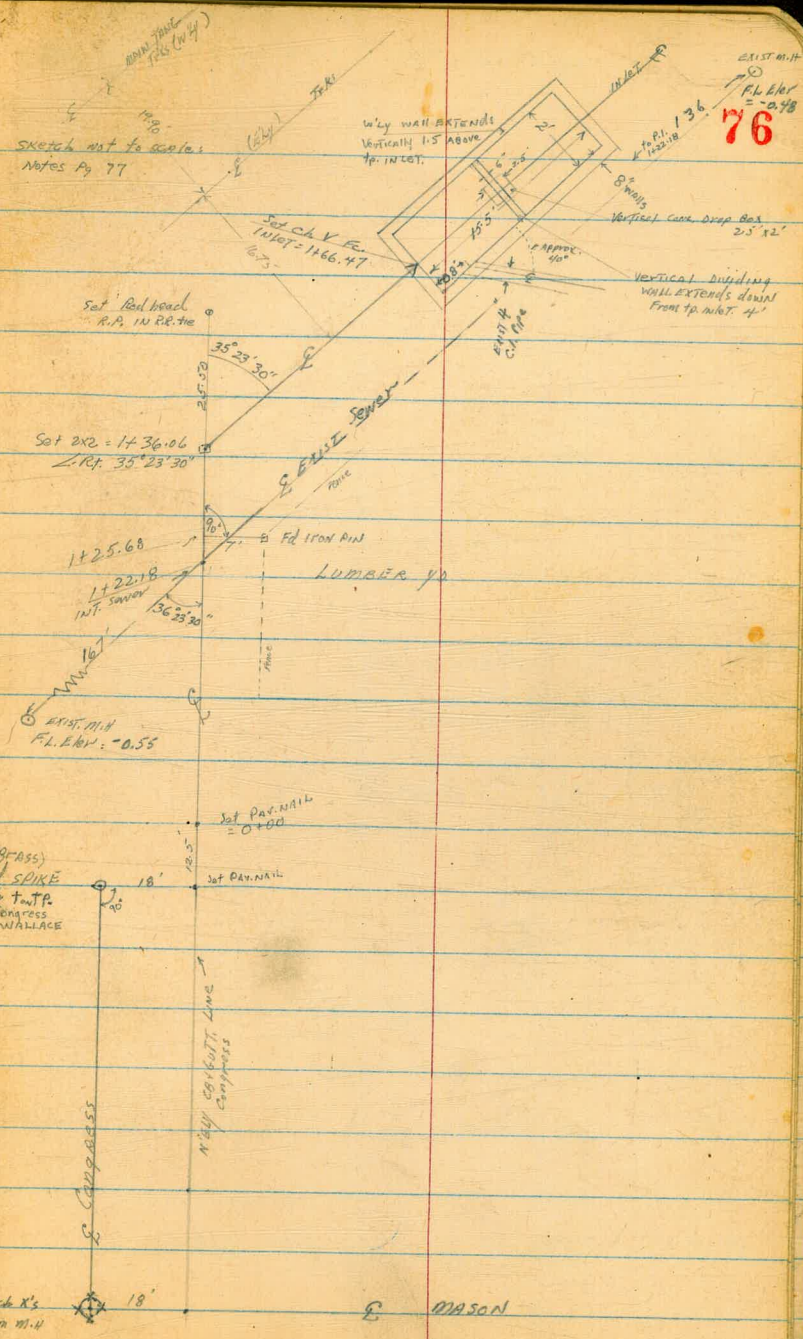 MAIN TRNG
TRKS (W'ly)
℄
19.90
℄ (E'ly) Trk
SKETCH Not to scale:
Notes Pg 77
W'ly WALL EXTENDS
Vertically 1.5 Above
tp. INLET.
INLET
℄
EXIST M.H
F.L. Elev
= -0.48
76
136
to P.I.
1+22.18
2'
6"
2.5'
5'
15.5'
0.8'
8" Walls
Vertical Conc. Drop Box
2.5' x 2'
∠ Approx.
40°
Vertical Dividing
WALL EXTENDS down
From tp. inlet 4'
EXIST 4"
C.I. Pipe
Set Ch. V Fc.
INLET = 1+66.47
16.75
Set Railhead
R.P. IN R.R. tie
35°23'30"
25.50
℄
Set 2x2 = 1+36.06
∠ Rt. 35°23'30"
℄ EXIST Sewer
Fence
90°
7'
Fd IRON PIN
1+25.68
1+22.18
INT. Sewer
36°23'30"
LUMBER YD
Fence
167'
EXIST. M.H
F.L. Elev: -0.55
℄
Set PAV. NAIL
= 0+00
12.5'
18'
Set PAV. NAIL
BRASS)
SPIKE
90°
Congress
WALLACE
N'ELY CB&GUTT. LINE →
Congress
℄ CONGRESS
X's
M.H
18'
℄ MASON